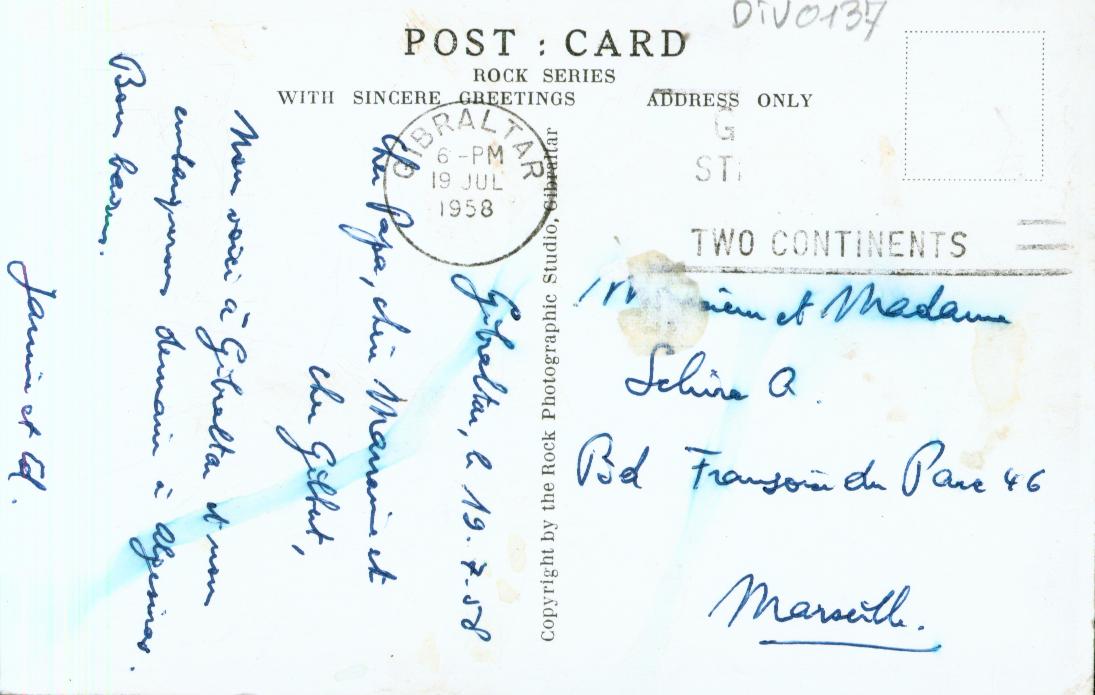 DIV0137
POST : CARD
ROCK SERIES
WITH SINCERE GREETINGS
ADDRESS ONLY
GIBRALTAR
6 - PM
19 JUL
1958
G
ST
TWO CONTINENTS
Copyright by the Rock Photographic Studio, Gibraltar
Gibraltar, le 19-7-58
Cher Papa, chère Maman et
cher Gilbert,
Nous voici à Gibraltar et nous
embarquerons demain à Algésiras.
Bons baisers.
et Ed.
et Madame
A.
Bd du Parc 46
Marseille.